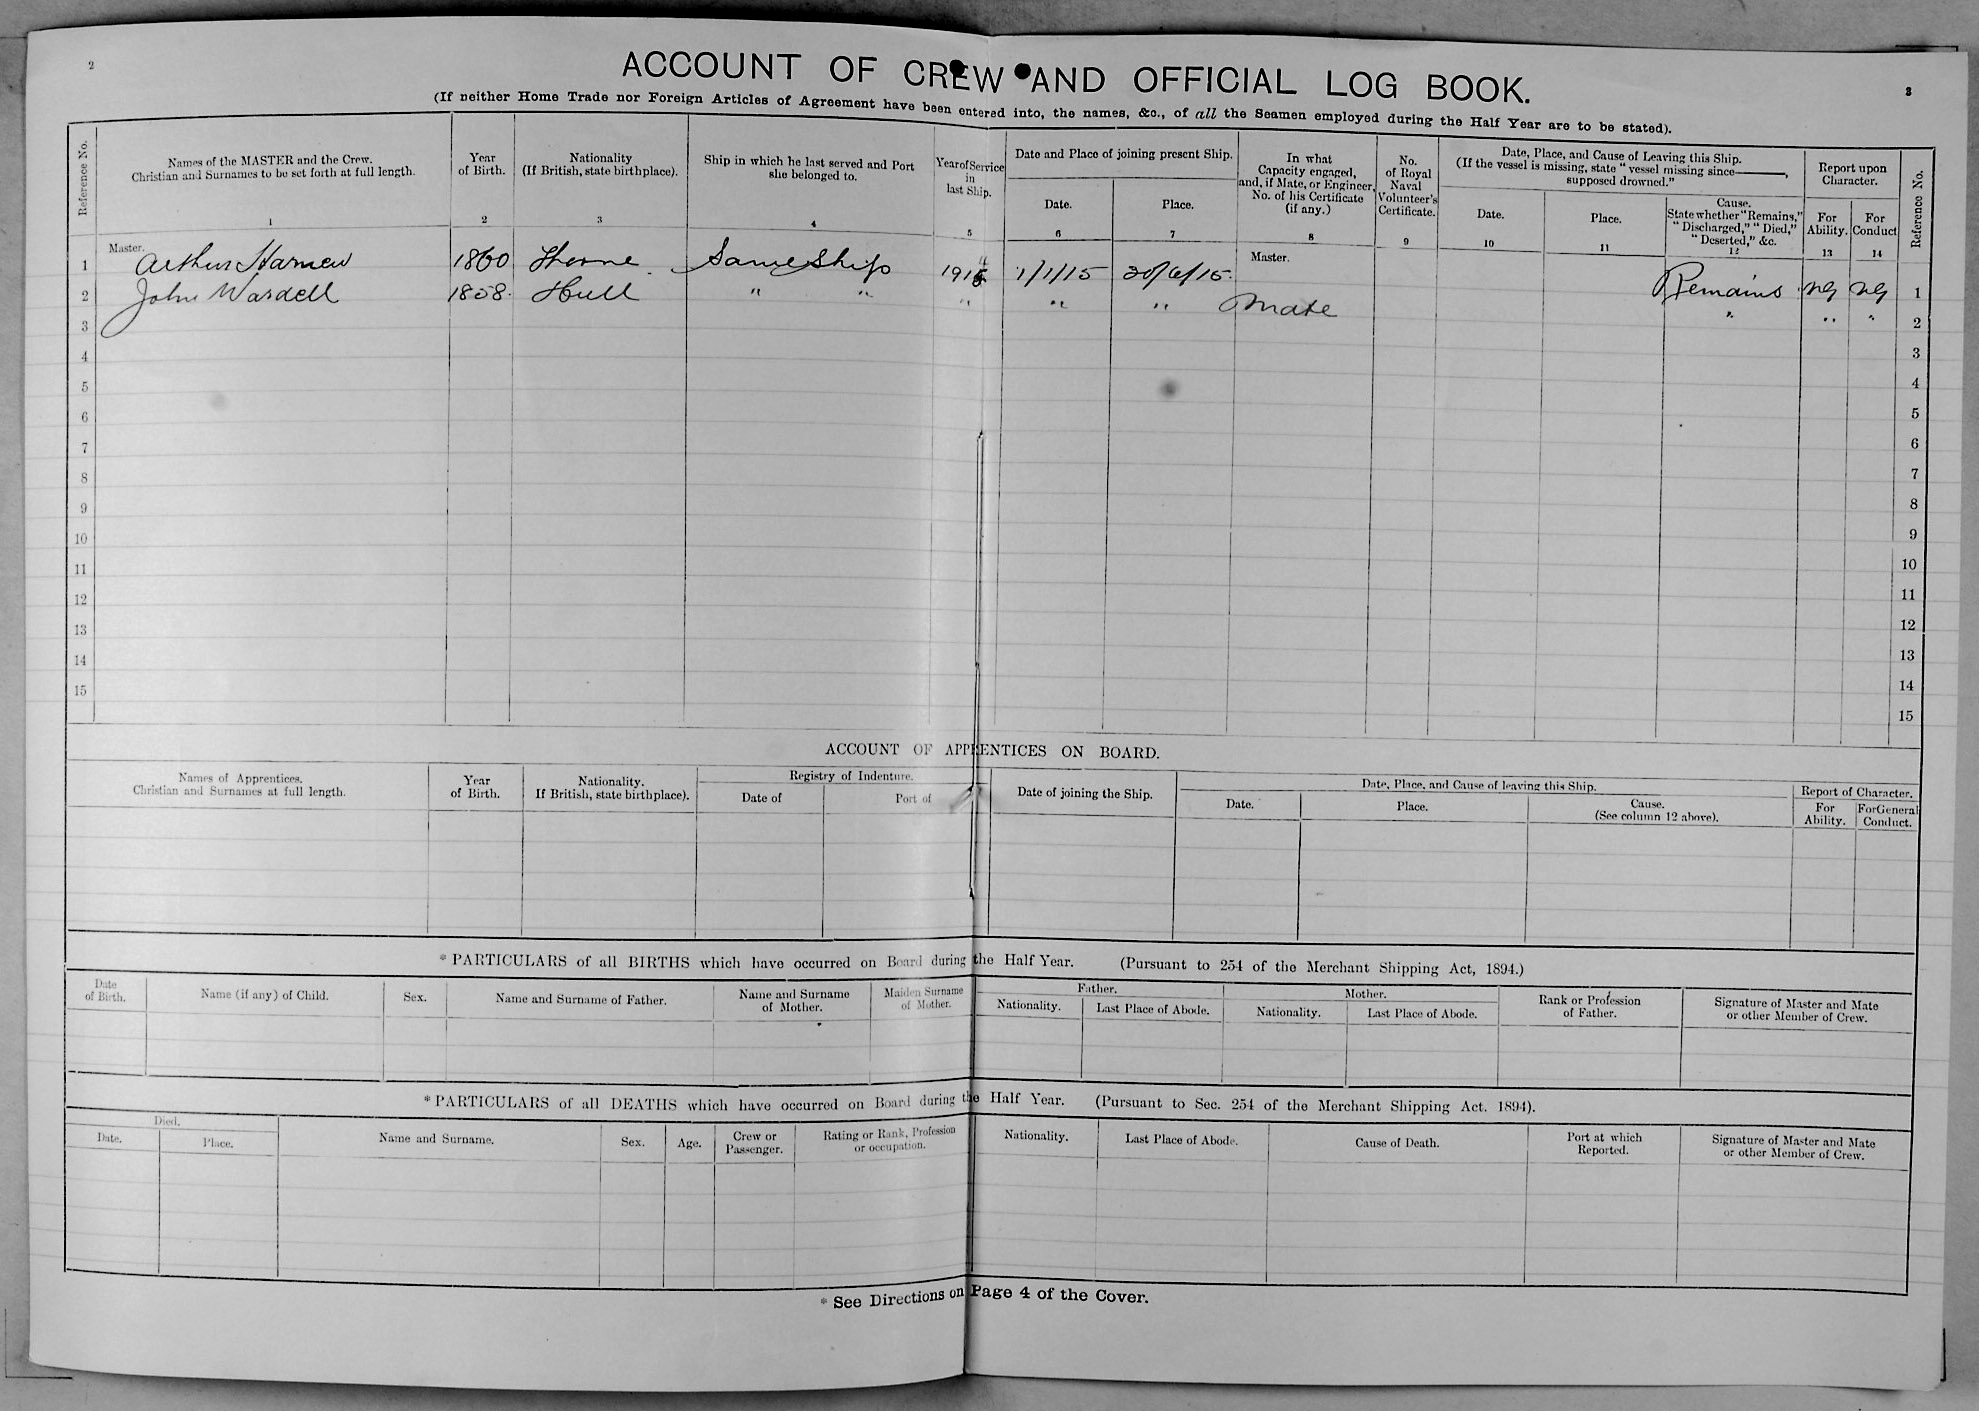 2
3
ACCOUNT OF CREW AND OFFICIAL LOG BOOK.
(If neither Home Trade nor Foreign Articles of Agreement have been entered into, the names, &c., of all the Seamen employed during the Half Year are to be stated).
Reference No.
Names of the MASTER and the Crew.
Christian and Surnames to be set forth at full length.
1
Year
of Birth.
2
Nationality
(If British, state birthplace).
3
Ship in which he last served and Port
she belonged to.
4
Year of Service
in
last Ship.
5
Date and Place of joining present Ship.
Date.
6
Place.
7
In what
Capacity engaged,
and, if Mate, or Engineer,
No. of his Certificate
(if any.)
8
No.
of Royal
Naval
Volunteer's
Certificate.
9
Date, Place, and Cause of Leaving this Ship.
(If the vessel is missing, state "vessel missing since———,
supposed drowned."
Date.
10
Place.
11
Cause.
State whether "Remains,"
"Discharged," "Died,"
"Deserted," &c.
12
Report upon
Character.
For
Ability.
13
For
Conduct
14
Reference No.
1 Master. Arthur Harnew 1860 Thorne Same Ship 1914 1/1/15 Master. Remains VG VG 1
2 John Wardell 1858 Hull " " " " " Mate " " " 2
3 3
4 4
5 5
6 6
7 7
8 8
9 9
10 10
11 11
12 12
13 13
14 14
15 15
ACCOUNT OF APPRENTICES ON BOARD.
Names of Apprentices.
Christian and Surnames at full length.
Year
of Birth.
Nationality.
If British, state birthplace).
Registry of Indenture.
Date of
Port of
Date of joining the Ship.
Date, Place, and Cause of leaving this Ship.
Date.
Place.
Cause.
(See column 12 above).
Report of Character.
For
Ability.
For General
Conduct.
* PARTICULARS of all BIRTHS which have occurred on Board during the Half Year. (Pursuant to 254 of the Merchant Shipping Act, 1894.)
Date
of Birth.
Name (if any) of Child.
Sex.
Name and Surname of Father.
Name and Surname
of Mother.
Maiden Surname
of Mother.
Father.
Nationality.
Last Place of Abode.
Mother.
Nationality.
Last Place of Abode.
Rank or Profession
of Father.
Signature of Master and Mate
or other Member of Crew.
* PARTICULARS of all DEATHS which have occurred on Board during the Half Year. (Pursuant to Sec. 254 of the Merchant Shipping Act. 1894).
Died.
Date.
Place.
Name and Surname.
Sex.
Age.
Crew or
Passenger.
Rating or Rank, Profession
or occupation.
Nationality.
Last Place of Abode.
Cause of Death.
Port at which
Reported.
Signature of Master and Mate
or other Member of Crew.
* See Directions on Page 4 of the Cover.